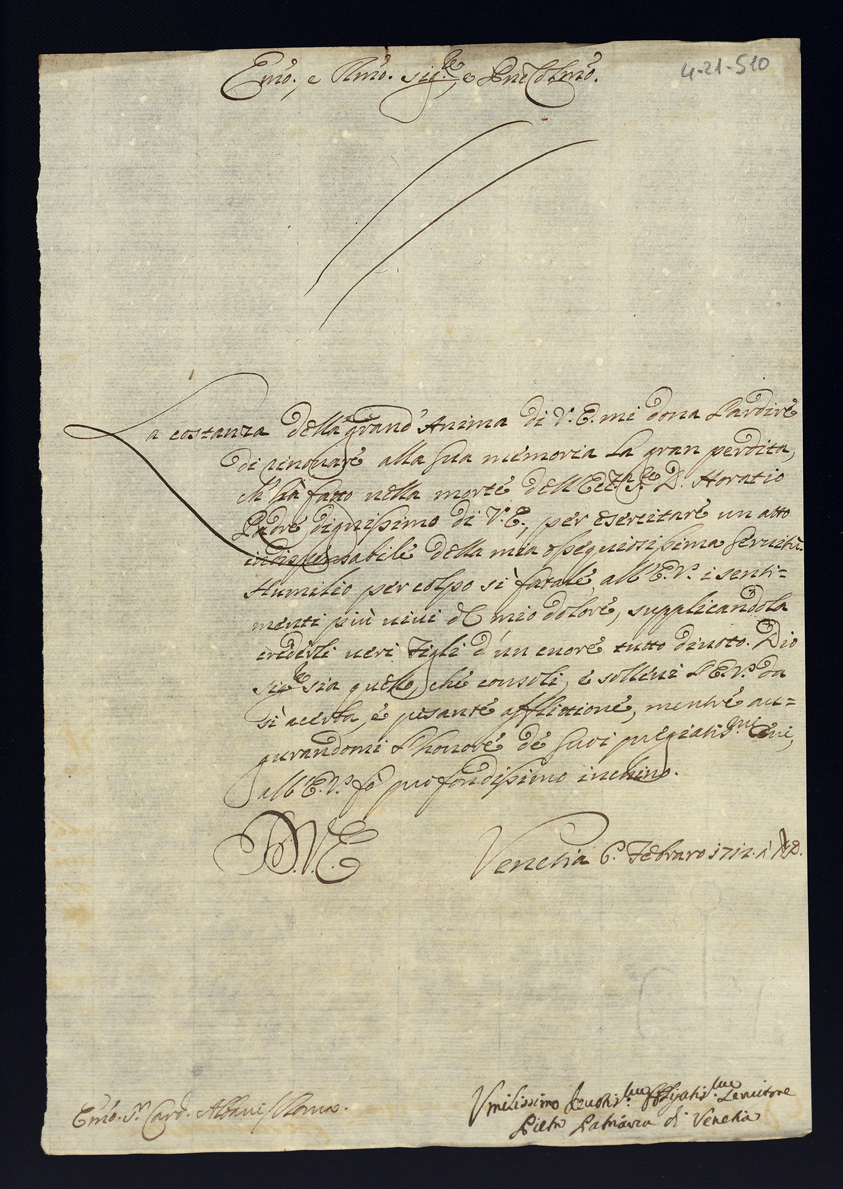 Emo. e Rmo. Sig.re e Pne Colmo.
4-21-510
La costanza della grand'Anima di V.E. mi dona l'ardire
di rinovare alla sua memoria la gran perdita,
ch'hà fatto nella morte dell'Ecc.mo S.r D. Horatio
Padre dignissimo di V.E., per esercitare un atto
indispensabile della mia ossequiosissima servitù.
Humilio per colpo sì fatale all'E.V. i senti=
menti più vivi del mio dolore, supplicandola
crederli veri figli d'un cuore tutto divoto. Dio
Sig.re sia quello, che consoli, e sollevi l'E.V. da
sì acerba, e pesante afflittione, mentre au=
gurandomi l'honore de suoi pregiatis.mi Cenni,
all'E.V. fò profondissimo inchino.
D.V.E.
Venetia 6. Febraro 1712.
Emo. S.r Card. Albani / Roma.
Umilissimo Devotis.mo Obligatis.mo Servitore
Pietro Patriarca di Venetia